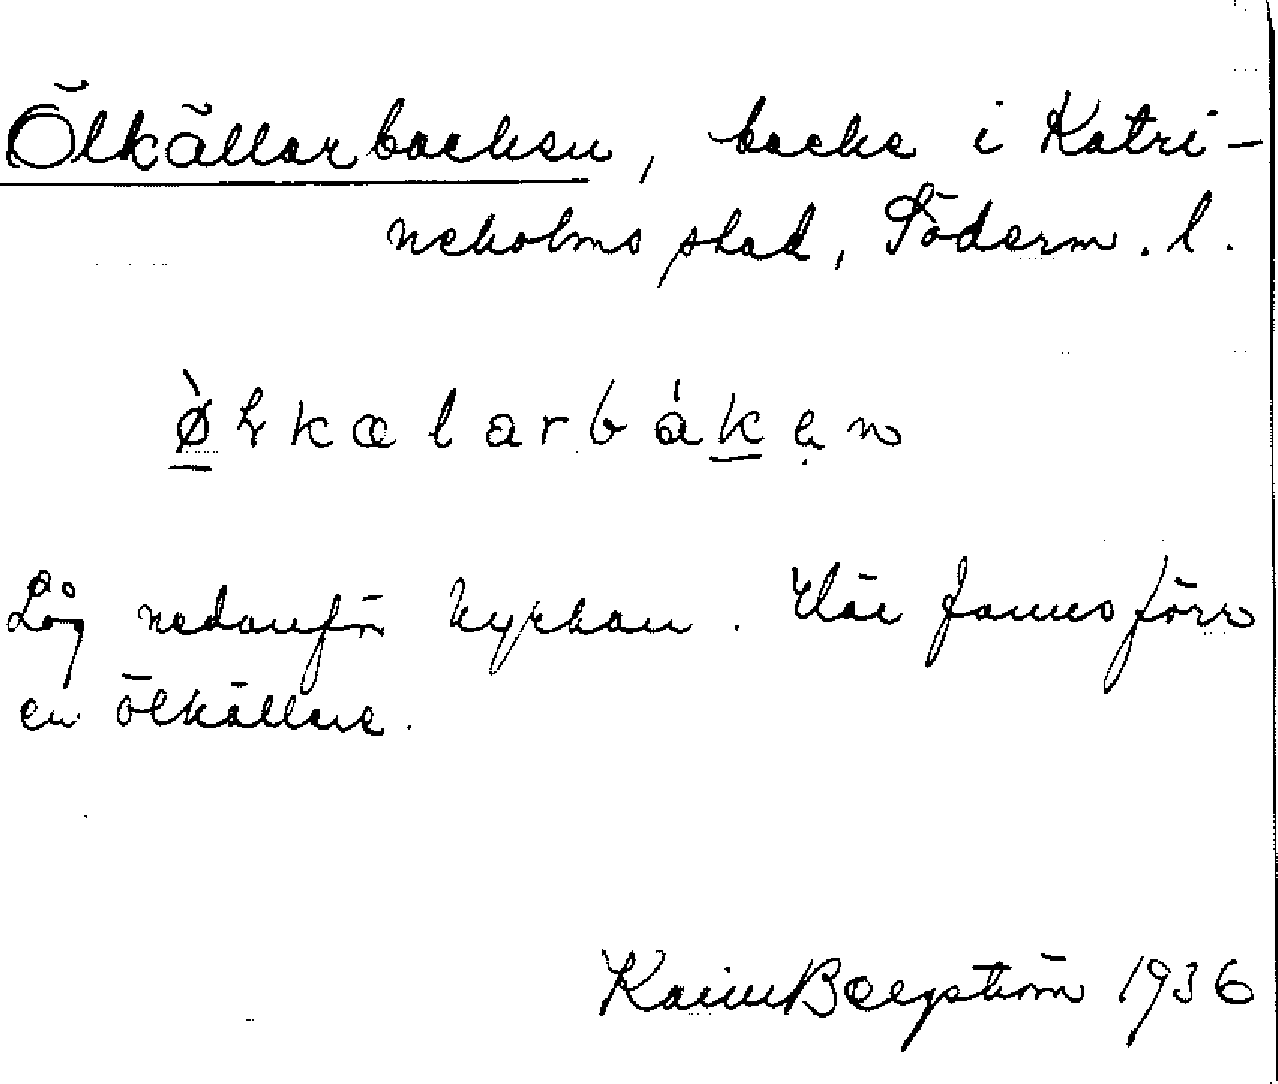 Ölkällarbacken, backe i Katri-
neholms stad, Söderm. l.
ø̀ɫkælarbákən
Låg nedanför kyrkan. Där fanns förr
en ölkällare.
Karin Bergström 1936